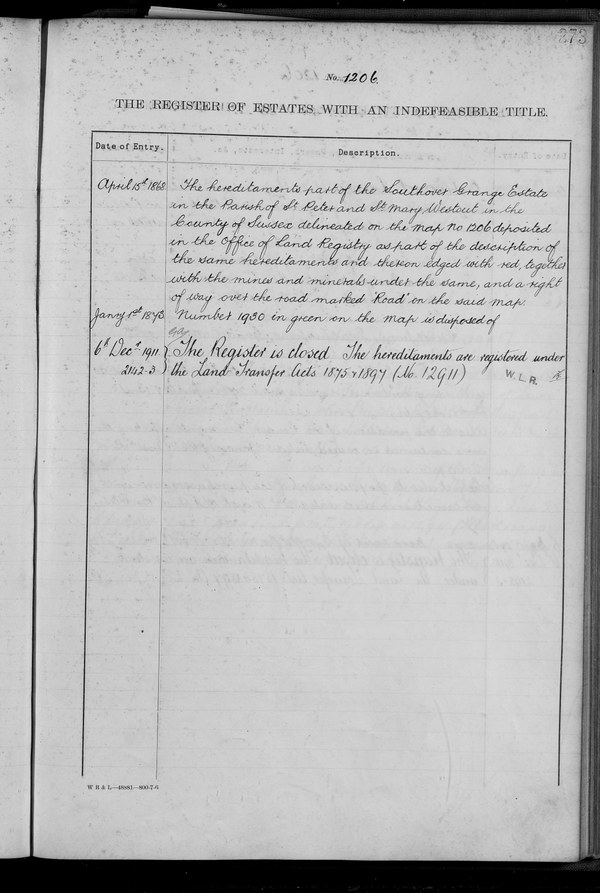 273
No. 1206.
THE REGISTER OF ESTATES WITH AN INDEFEASIBLE TITLE.
Date of Entry. Description.
April 15th 1868 The hereditaments part of the Southover Grange Estate
in the Parish of St Peter and St Mary Westout in the
County of Sussex delineated on the map No 1206 deposited
in the Office of Land Registry as part of the description of
the same hereditaments and thereon edged with red, together
with the mines and minerals under the same, and a right
of way over the road marked 'Road' on the said map.
Jany 1st 1873 Number 1930 in green on the map is disposed of
6th Decr 1911 The Register is closed The hereditaments are registered under
2142-3 the Land Transfer Acts 1875 & 1897 (No. 12911) W.L.R.
W B & L—48881—800-7-6